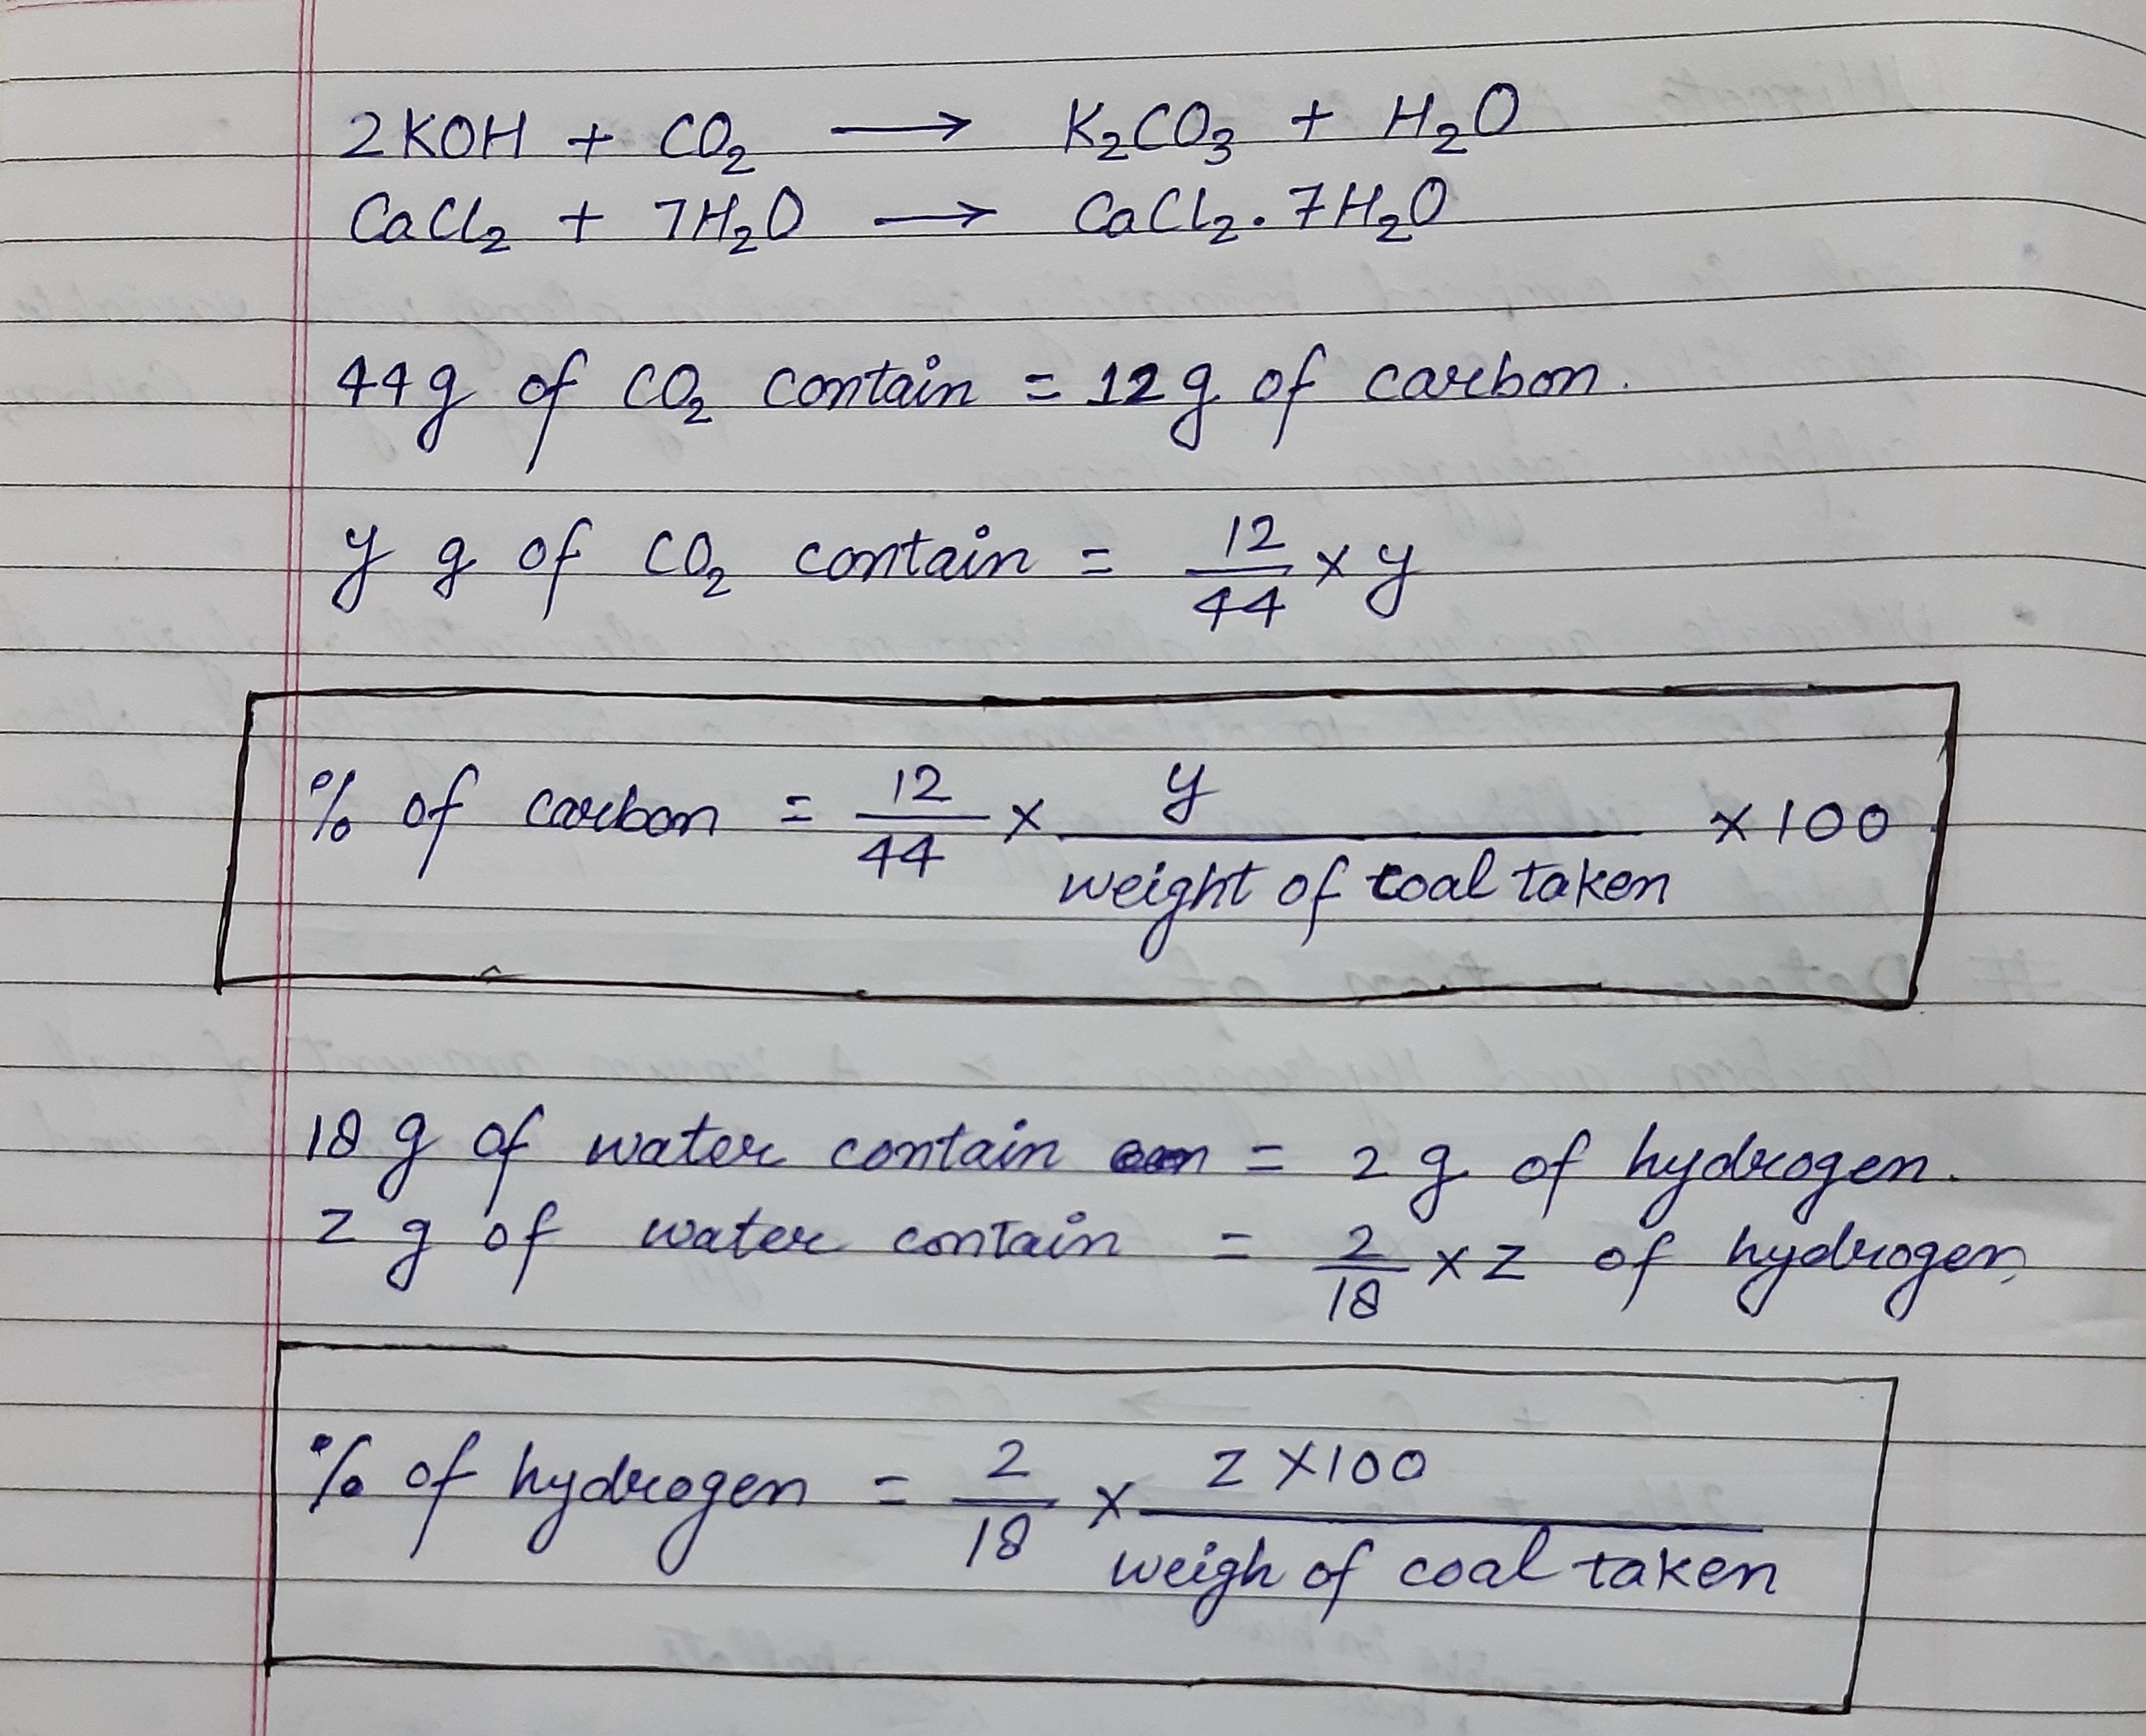 2KOH + CO₂ ⟶ K₂CO₃ + H₂O
CaCl₂ + 7H₂O ⟶ CaCl₂.7H₂O
44g of CO₂ contain = 12g of carbon.
y g of CO₂ contain = 12/44 × y
% of carbon = 12/44 × y/weight of coal taken × 100
18 g of water contain = 2 g of hydrogen.
z g of water contain = 2/18 × z of hydrogen
% of hydrogen = 2/18 × z × 100/weigh of coal taken